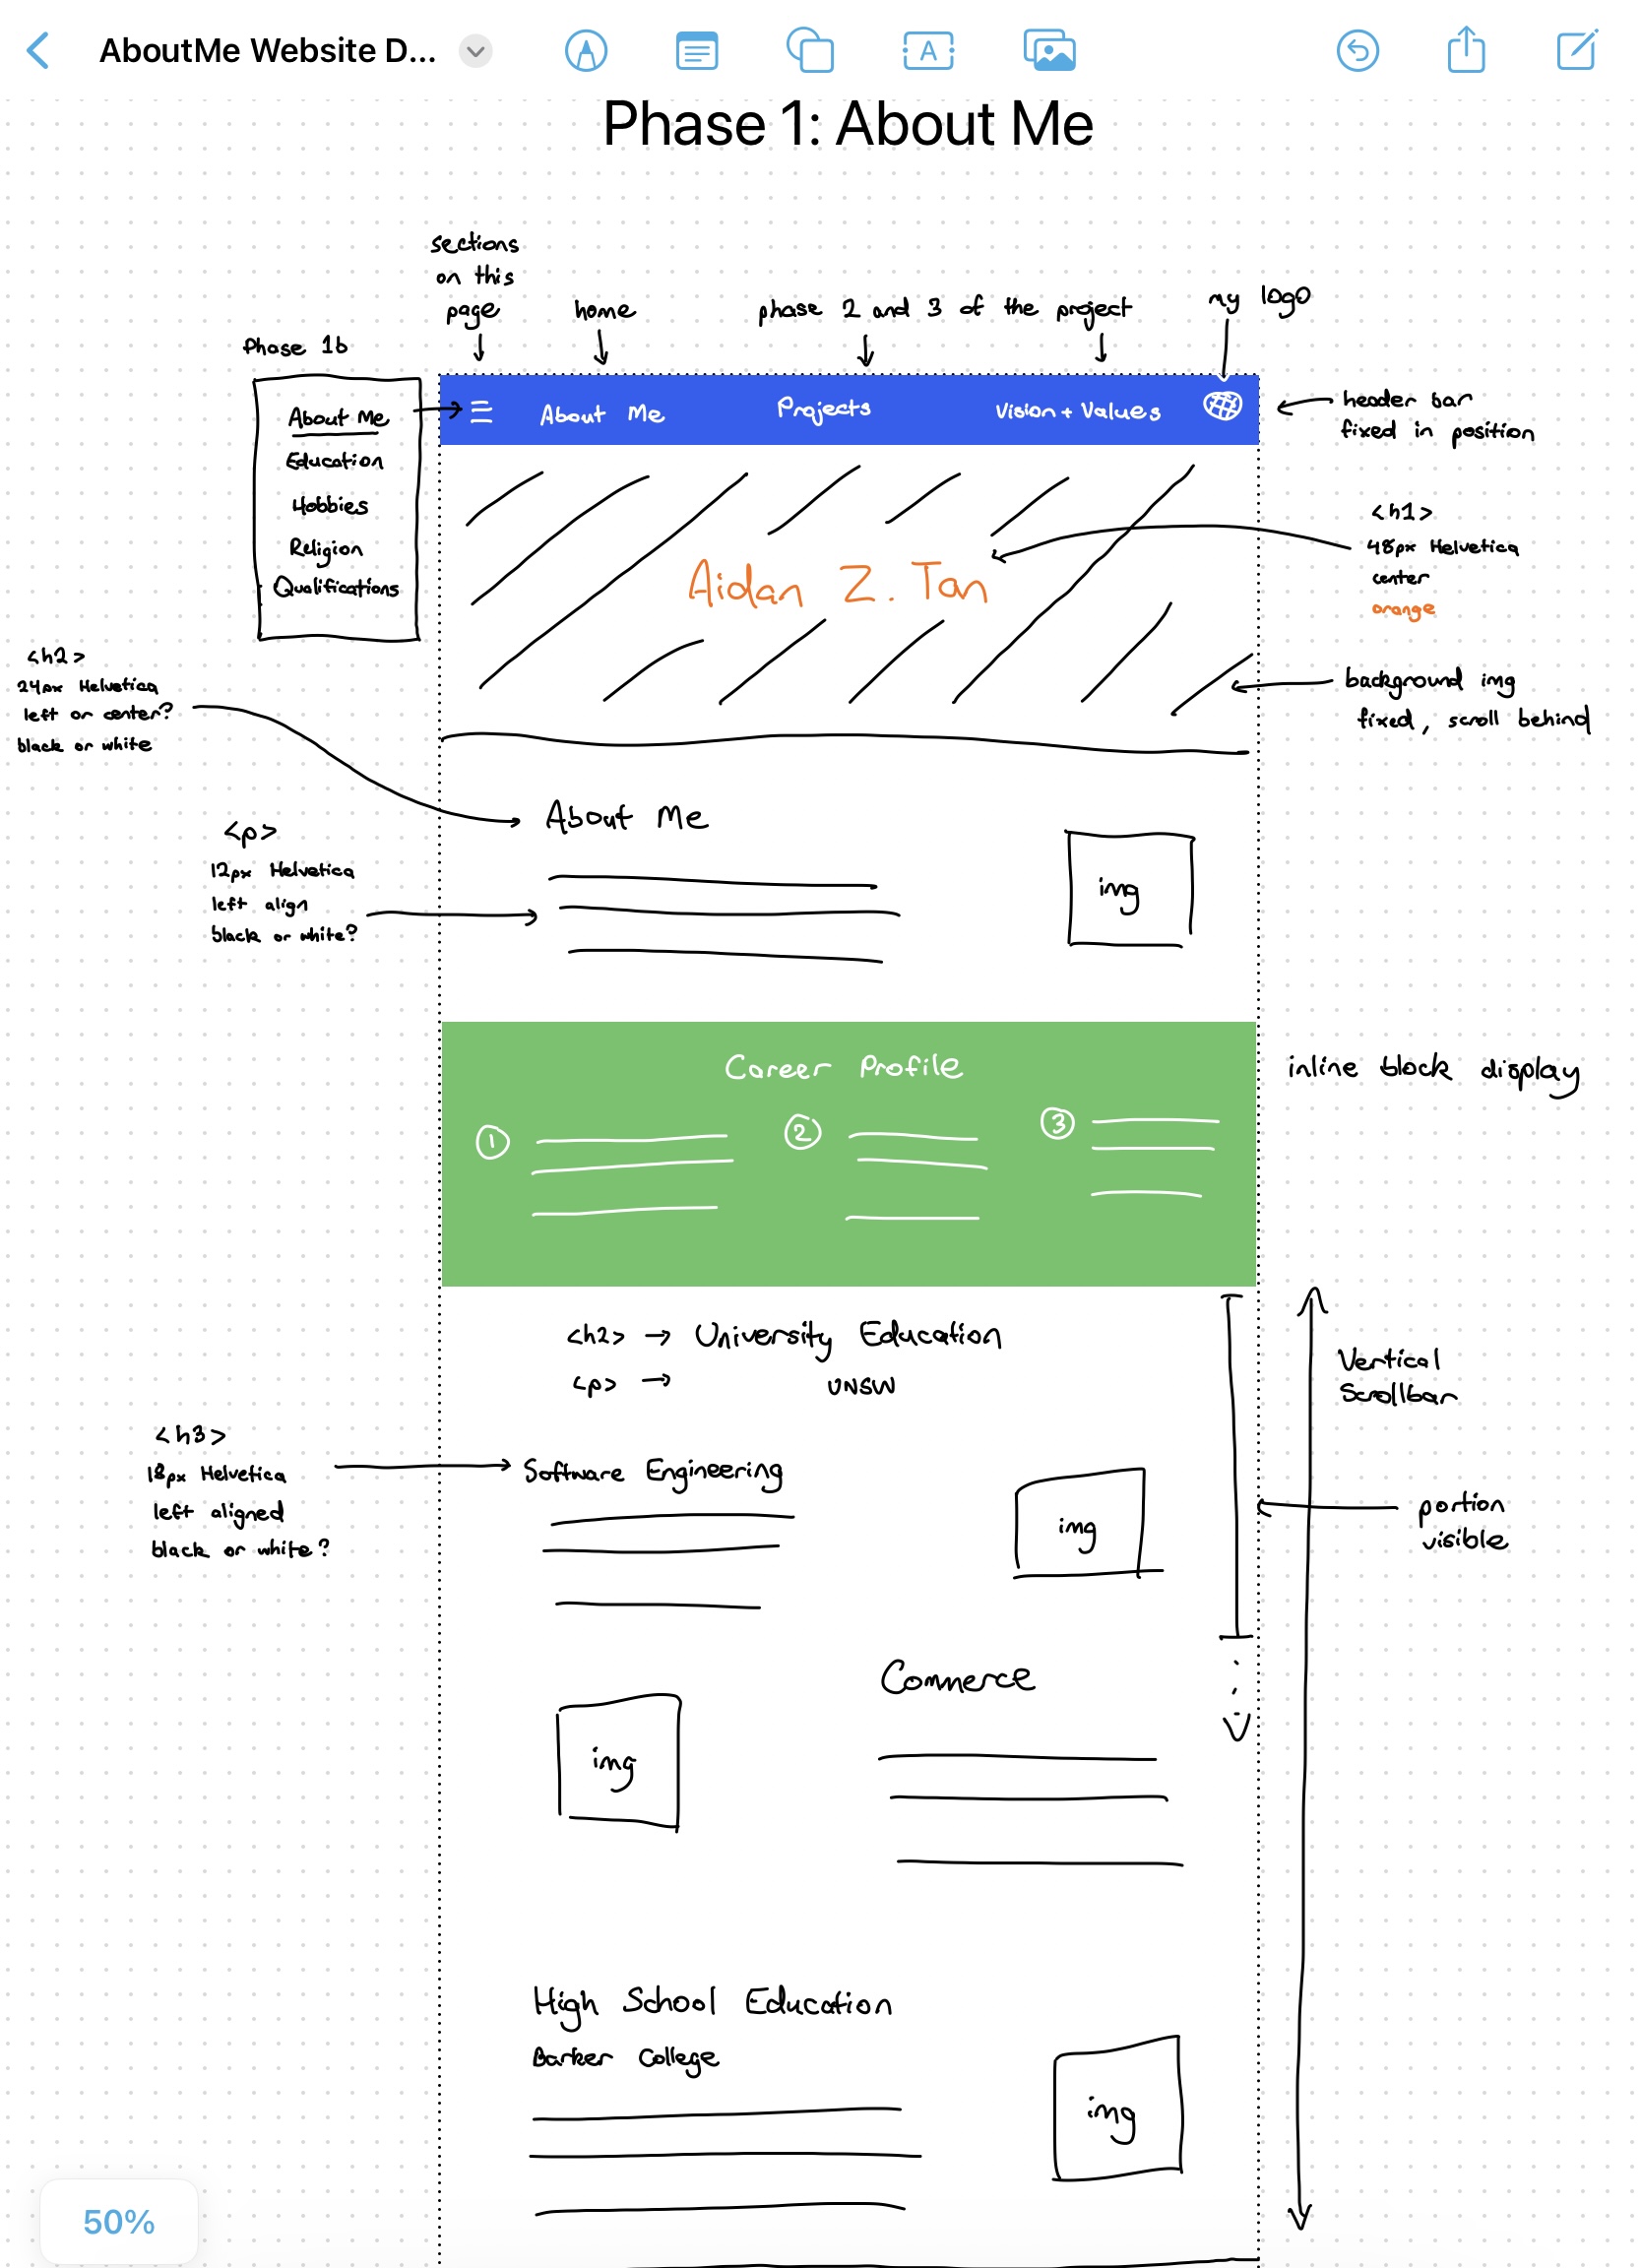 AboutMe Website D...
Phase 1: About Me
sections
on this
page
home
phase 2 and 3 of the project
my logo
Phase 1b
About Me
Education
Hobbies
Religion
Qualifications
About Me
Projects
Vision + Values
header bar
fixed in position
Aidan Z. Tan
<h1>
48px Helvetica
center
orange
background img
fixed, scroll behind
<h2>
24px Helvetica
left or center?
black or white
About Me
img
<p>
12px Helvetica
left align
black or white?
Career Profile
1
2
3
inline block display
<h2> → University Education
<p> → UNSW
Vertical
Scrollbar
portion
visible
<h3>
18px Helvetica
left aligned
black or white?
Software Engineering
img
Commerce
img
High School Education
Barker College
img
50%